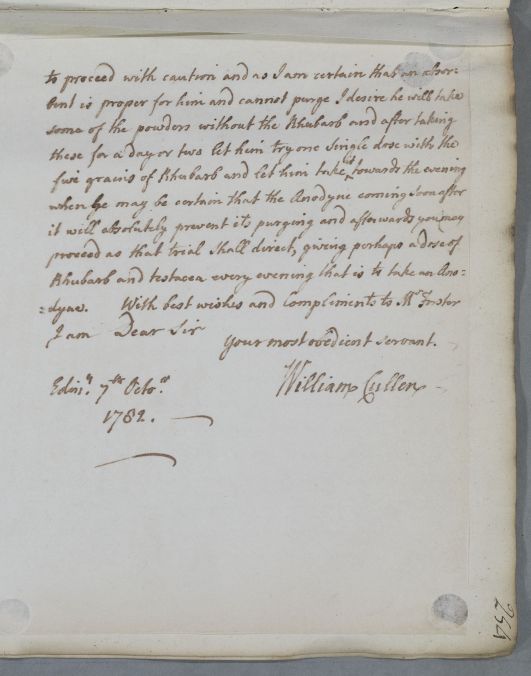 to proceed with caution and as I am certain that an absor:
bent is proper for him and cannot purge I desire he will take
some of the powders without the Rhubarb and after taking
these for a day or two let him try one single dose with the
five grains of Rhubarb and let him take it towards the evening
when he may be certain that the Anodyne coming soon after
it will absolutely prevent its purging and afterwards you may
proceed as that trial shall direct, giving perhaps a dose of
Rhubarb and testacea every evening that is to take an Ano:
:dyne. With best wishes and Compliments to Mr
I am Dear Sir
your most obedient servant.
William Cullen
Edinr. 7th Octor.
1782.